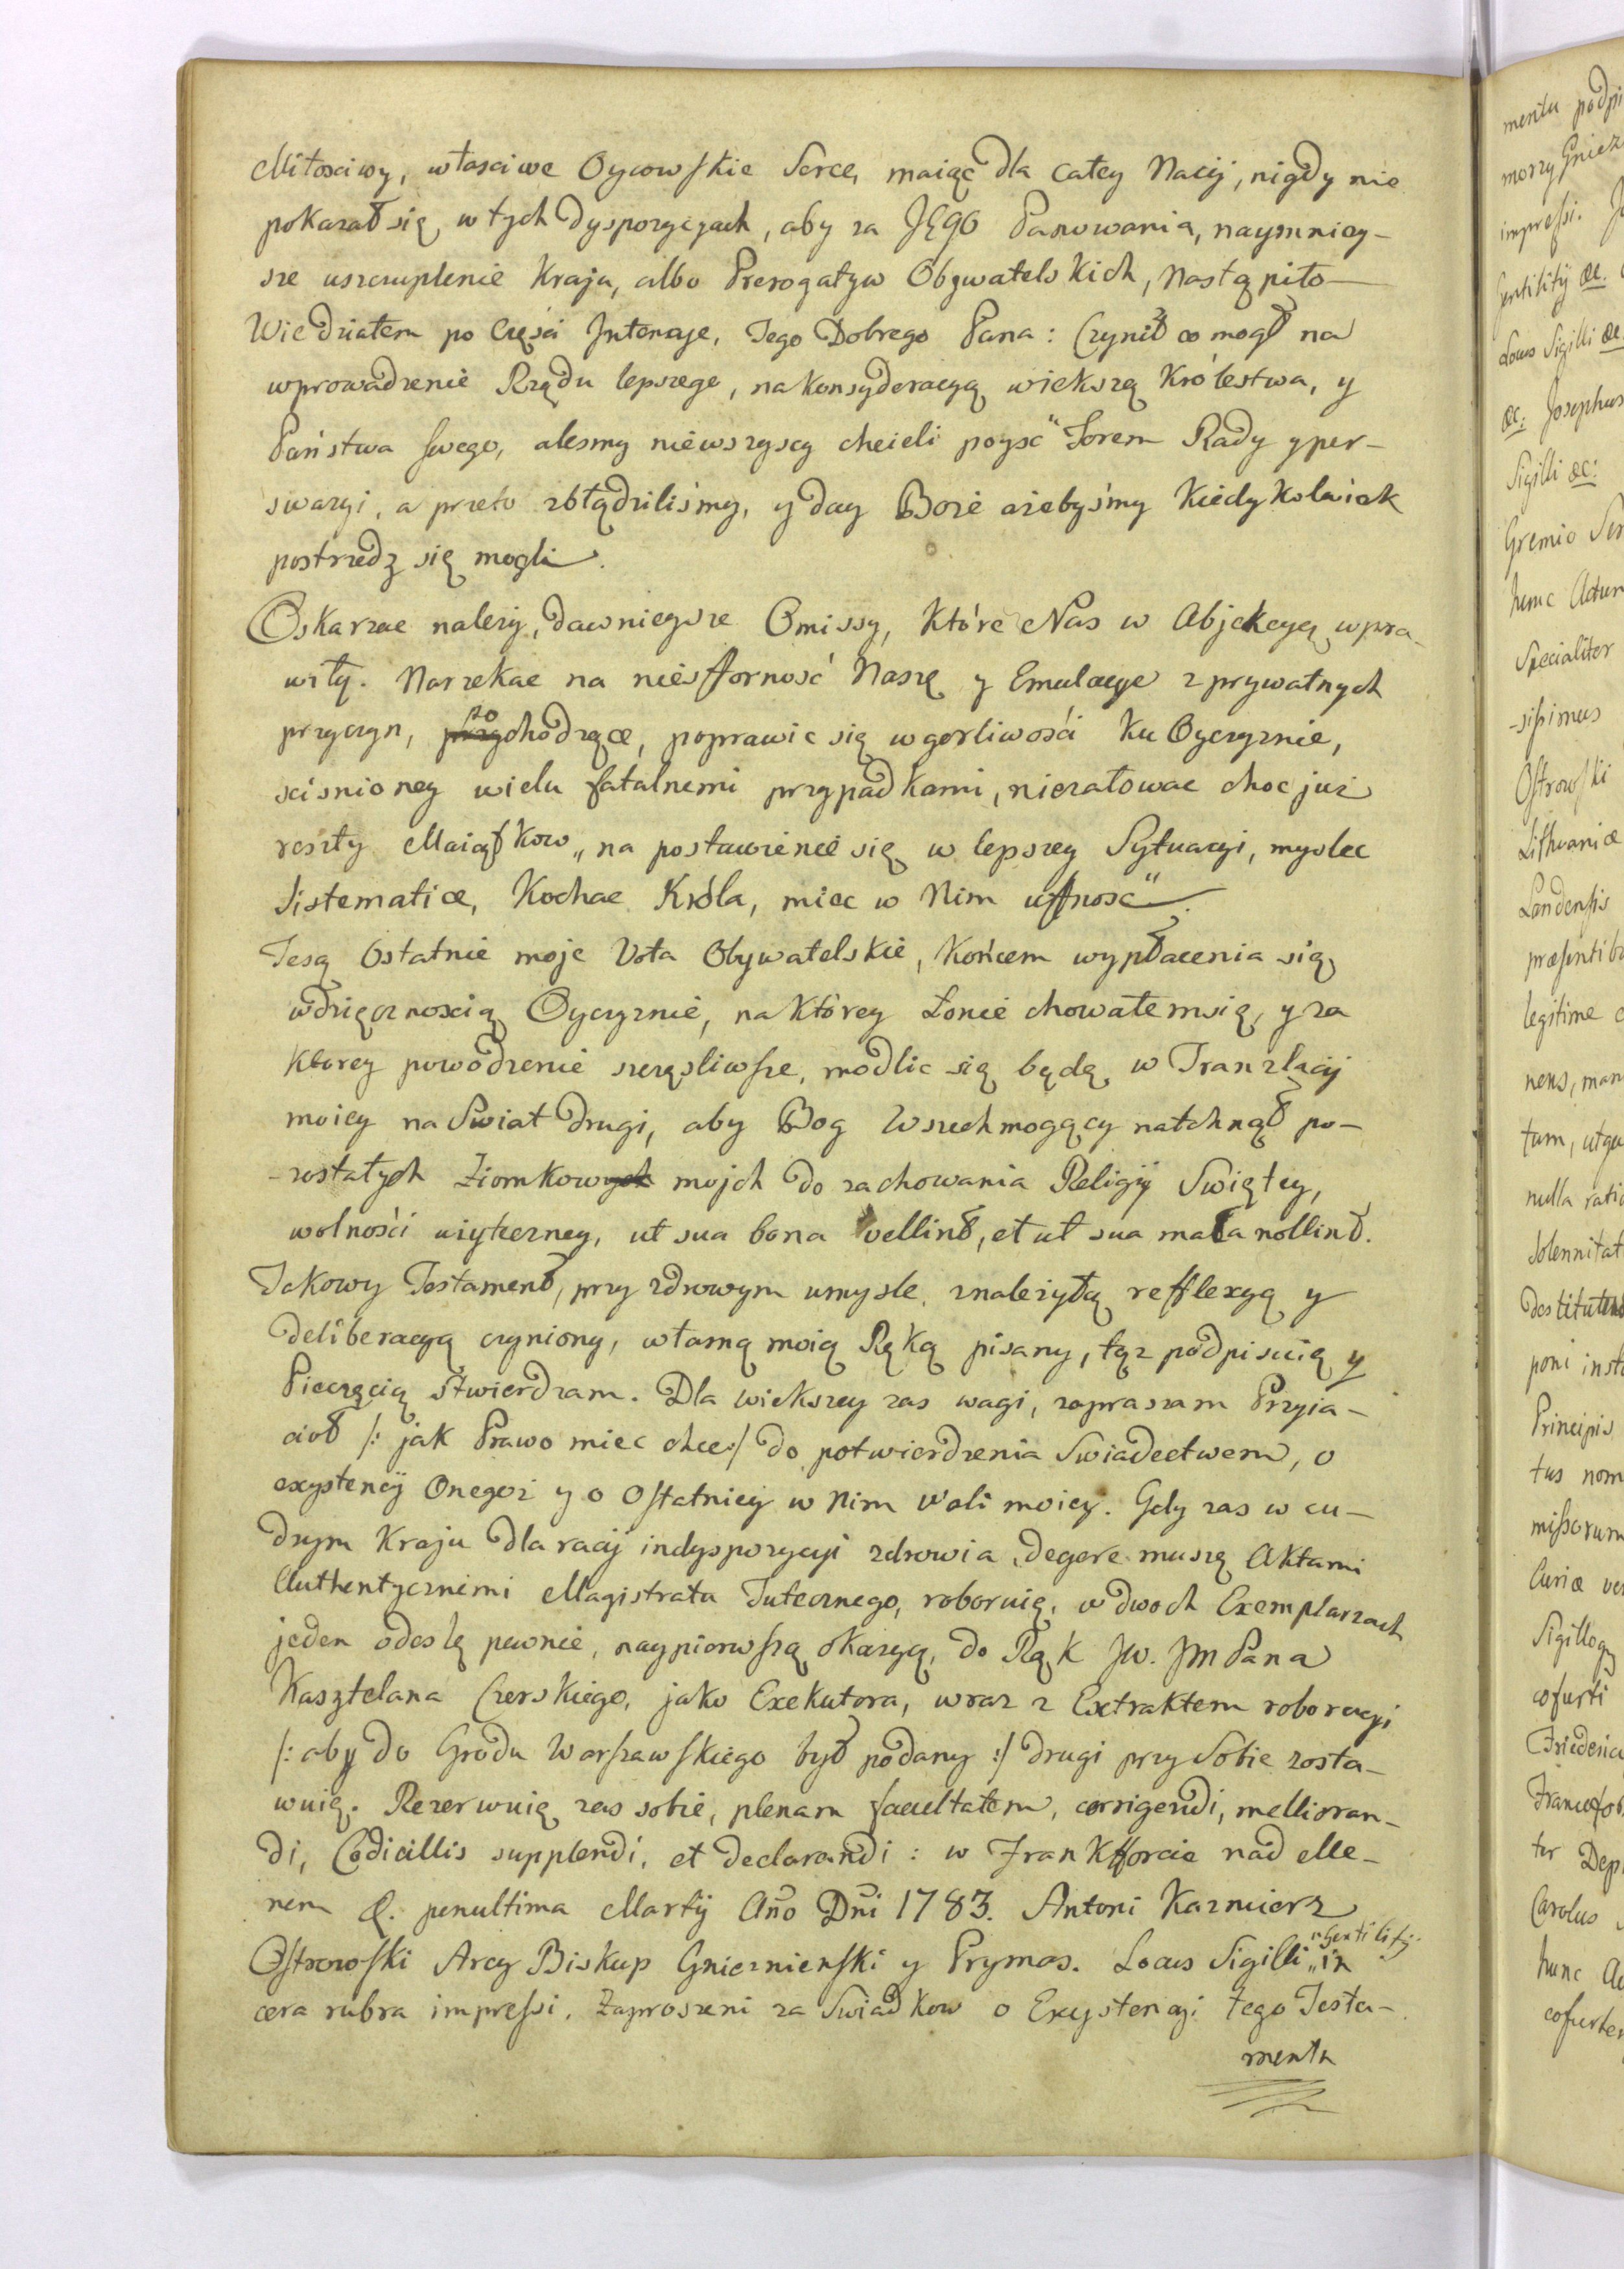 Miłosciwy, własciwe Oycowskie Serce, maiąc dla całey Nacij, nigdy nie
pokazał się w tych dyspozycyach, aby za JEGO Panowania, naymniey-
sze uszczuplenie Kraju, albo Prerogatyw Obywatelskich, Nastąpiło
Wiedziałem po Części Jntencye, Tego Dobrego Pana: Czynił co mogł na
wprowadzenie Rządu lepszego, na konsyderacyą wiekszą Królestwa, y
Państwa swego, alesmy niewszyscy chcieli poysc" Torem Rady y per-
swazyi, a przeto zbłądziliśmy, y day Boże ażebyśmy Kiedykolwiek
postrzedz się mogli.
Oskarzac nalezy, dawnieysze Omissy, Które Nas w Abjekcyą wpra-
wiły. Narzekac na niesfforność Naszę y Emulacye z prywatnych
przyczyn, pochodzące, poprawic się w gorliwości Ku Oyczyznie,
scisnioney wielu fatalnemi przypadkami, nieżałowac choc już
reszty Maiątkow „na postawienie się w lepszey Sytuacyi, myslec
Sistematice, Kochac Króla, miec w Nim uffnosc".
Te są Ostatnie moje Vota Obywatelskie, Końcem wypłacenia się
wdzięcznoscią Oyczyznie, na Którey Łonie chowałem się, y za
Ktorey powodzenie szczęsliwsze, modlic się będę w Tranzlacij
moiey na Swiat drugi, aby Bog Wszechmogący natchnął po-
-zostałych Ziomkow mojch do zachowania Religij Swiętey,
wolności użyteczney, ut sua bona vellint, et ut sua mala nollint.
Jakowy Testament, przy zdrowym umysle, z należytą refflexyą y
deliberacyą czyniony, własną moią Ręką pisany, tąż podpisuię y
Pieczęcią stwierdzam. Dla wiekszey zas wagi, zapraszam Przyia-
ciół /: jak Prawo miec chce :/ do potwierdzenia Swiadectwem, o
exystencij Onegoż y o Ostatniey w Nim Woli moiey. Gdy zas w cu-
dzym Kraju dla racij indyspozycyi zdrowia, degere muszę Aktami
Authentycznemi Magistratu Tutecznego, roboruię, w dwoch Exemplarzach
jeden odeslę pewnie, naypierwszą okazyą, do Rąk JW. JM Pana
Kasztelana Czerskiego, jako Exekutora, wraz z Extraktem roboracyi
/: aby do Grodu Warszawskiego był podany :/ drugi przy Sobie zosta-
wuię. Rezerwuię zas sobie, plenam facultatem, corrigendi, mellioran-
di, Codicillis supplendi, et declarandi: w Frankfforcie nad Me-
nem d. penultima Martij Ano Dni 1783. Antoni Kazmierz
Ostrowski Arcy Biskup Gnieznienski y Prymas. Locus Sigilli „Gentilitij. „in
cera rubra impressi. Zaproszeni za Swiadkow o Exystencyi tego Testa-
mentu
mentu podpi
morzy Gniez
impressi. J
Gentilitij &c.
Locus Sigilli &c.
&c: Josephus
Sigilli &c:
Gremio
hunc Actum
Specialiter
-sissimus
Ostrowski
Lithvaniæ
Landensis
præsentib
legitime
nens, man
tum, utqu
nulla ratio
Solennitat
destitutum
poni inst
Principis
tus nom
missorum
Curiæ
Sigilloq
cofurti
Friderici
Francofor
ter Dep
Carolus
hunc Ac
cofurten